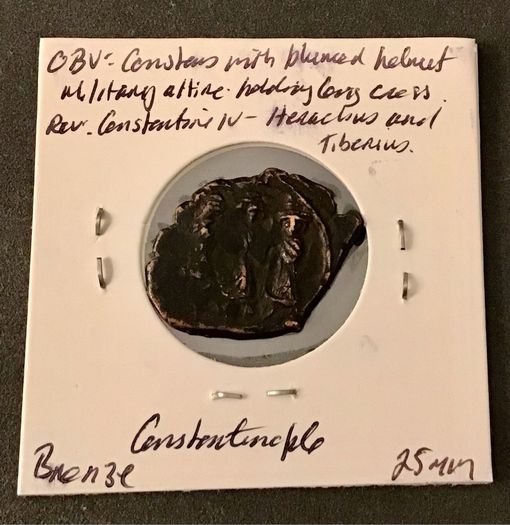 OBV- Constans with plumed helmet
military attire. holding long cross.
Rev. Constantine IV - Heraclius and
Tiberius.
Constantinople
Bronze
25mm